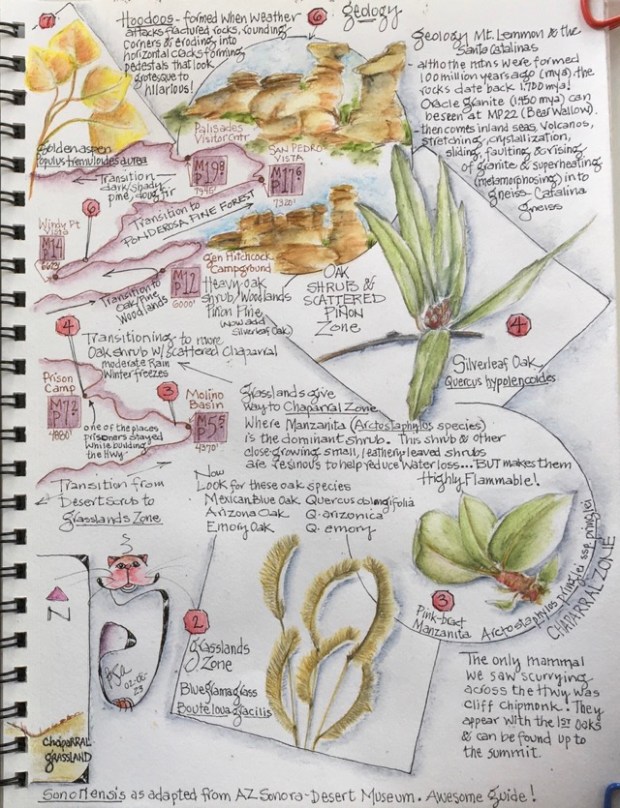 7
Hoodoos - formed when weather
attacks fractured rocks, rounding
corners & eroding into
horizontal cracks forming
pedestals that look
grotesque to
hilarious!
6
geology
geology Mt. Lemmon & the
Santa Catalinas
- altho the mtns were formed
100 million years ago (mya) the
rocks date back 1,700 mya!
Oracle granite (1,450 mya) can
be seen at MP22 (Bear Wallow).
then comes inland seas, volcanos,
stretching, crystallization,
sliding, faulting & rising
of granite & superheating
(metamorphosing) into
gneiss - Catalina
gneiss
Golden aspen
Populus tremuloides aurea
Palisades
Visitor Cntr
M19.8
P
7945'
San Pedro
Vista
M17.6
P
7320'
Transition
dark/shady
pine, doug fir
Transition to
Ponderosa Pine Forest
Windy Pt
Vista
M14
P
6
Gen Hitchcock
Campground
M12
P
6000'
Heavy oak
shrub/Woodlands
Pinon Pine
(now add
silverleaf Oak)
Transition to
Oak/Pine
Woodlands
Oak
Shrub &
Scattered
Pinon
Zone
4
Silverleaf Oak
Quercus hypolencoides
4
Transitioning to more
Oak shrub w/scattered Chaparral
moderate Rain
Winter freezes
Prison
Camp
M7.2
P
4880'
3
Molino
Basin
M5.5
P
4370'
one of the places
prisoners stayed
while building
the Hwy
Grasslands give
way to Chaparral Zone
Where Manzanita (Arctostaphylos species)
is the dominant shrub. This shrub & other
close-growing small, leathery leaved shrubs
are resinous to help reduce water loss... BUT makes them
Highly Flammable!
Transition from
Desert Scrub to
Grasslands Zone
Now
Look for these oak species
Mexican Blue Oak Quercus oblongifolia
Arizona Oak Q. arizonica
Emory Oak Q. emory
3
Pink-bract
Manzanita
Arctostaphylos pringlei ssp. pringlei
CHAPARRAL ZONE
N
02-06-
23
2
Grasslands
Zone
Blue glama grass
Bouteloua glacilis
The only mammal
we saw scurrying
across the Hwy was
cliff chipmonk! They
appear with the 1st Oaks
& can be found up to
the summit.
chaparral
grassland
SonoMensis as adapted from AZ Sonora-Desert Museum. Awesome Guide!